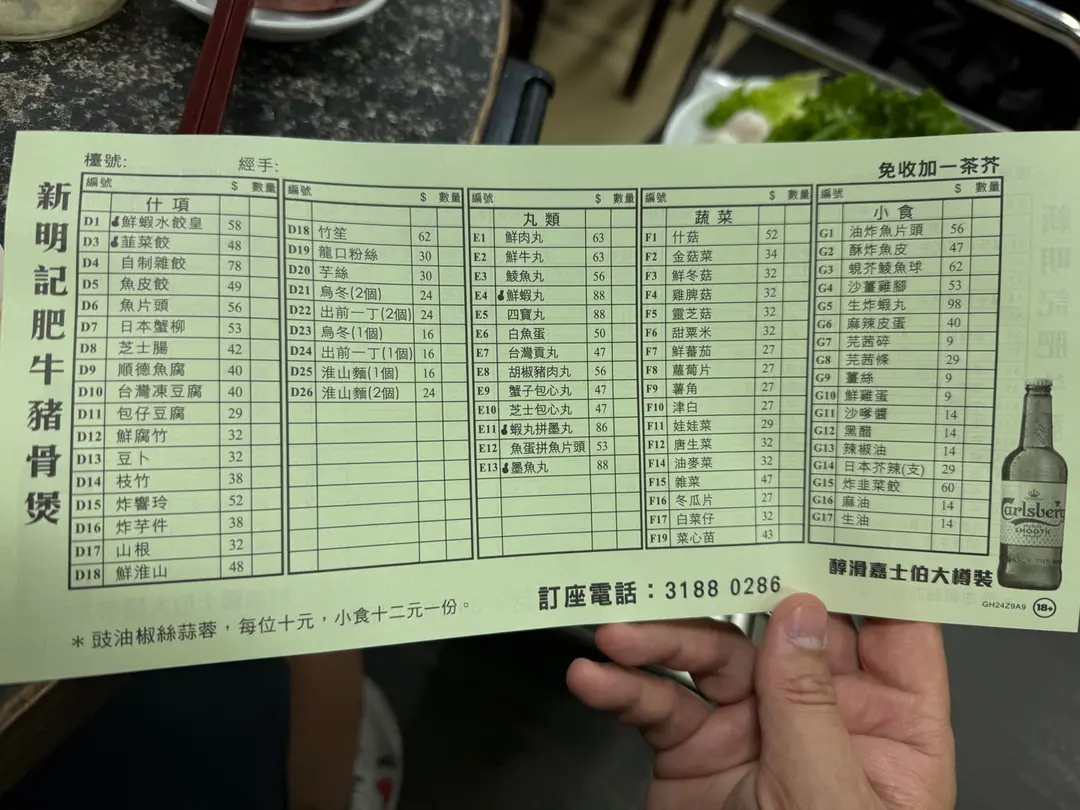 新明記肥牛豬骨煲
檯號: 經手: 免收加一茶芥
編號 $ 數量
什項
D1 鮮蝦水餃皇 58
D3 韮菜餃 48
D4 自制雜餃 78
D5 魚皮餃 49
D6 魚片頭 56
D7 日本蟹柳 53
D8 芝士腸 42
D9 順德魚腐 40
D10 台灣凍豆腐 40
D11 包仔豆腐 29
D12 鮮腐竹 32
D13 豆卜 32
D14 枝竹 38
D15 炸響玲 52
D16 炸芋件 38
D17 山根 32
D18 鮮淮山 48
編號 $ 數量
D18 竹笙 62
D19 龍口粉絲 30
D20 芋絲 30
D21 烏冬(2個) 24
D22 出前一丁(2個) 24
D23 烏冬(1個) 16
D24 出前一丁(1個) 16
D25 淮山麵(1個) 16
D26 淮山麵(2個) 24
編號 $ 數量
丸類
E1 鮮肉丸 63
E2 鮮牛丸 63
E3 鯪魚丸 56
E4 鮮蝦丸 88
E5 四寶丸 88
E6 白魚蛋 50
E7 台灣貢丸 47
E8 胡椒豬肉丸 56
E9 蟹子包心丸 47
E10 芝士包心丸 47
E11 蝦丸拼墨丸 86
E12 魚蛋拼魚片頭 53
E13 墨魚丸 88
編號 $ 數量
蔬菜
F1 什菇 52
F2 金菇菜 34
F3 鮮冬菇 32
F4 雞脾菇 32
F5 靈芝菇 32
F6 甜粟米 32
F7 鮮蕃茄 27
F8 蘿蔔片 27
F9 薯角 27
F10 津白 27
F11 娃娃菜 29
F12 唐生菜 32
F14 油麥菜 32
F15 雜菜 47
F16 冬瓜片 27
F17 白菜仔 32
F19 菜心苗 43
編號 $ 數量
小食
G1 油炸魚片頭 56
G2 酥炸魚皮 47
G3 蜆芥鯪魚球 62
G4 沙薑雞腳 53
G5 生炸蝦丸 98
G6 麻辣皮蛋 40
G7 芫茜碎 9
G8 芫茜條 29
G9 薑絲 9
G10 鮮雞蛋 9
G11 沙嗲醬 14
G12 黑醋 14
G13 辣椒油 14
G14 日本芥辣(支) 29
G15 炸韭菜餃 60
G16 麻油 14
G17 生油 14
Carlsberg
SMOOTH
醇滑嘉士伯大樽裝
GH24Z9A9 18+
訂座電話：3188 0286
＊豉油椒絲蒜蓉，每位十元，小食十二元一份。